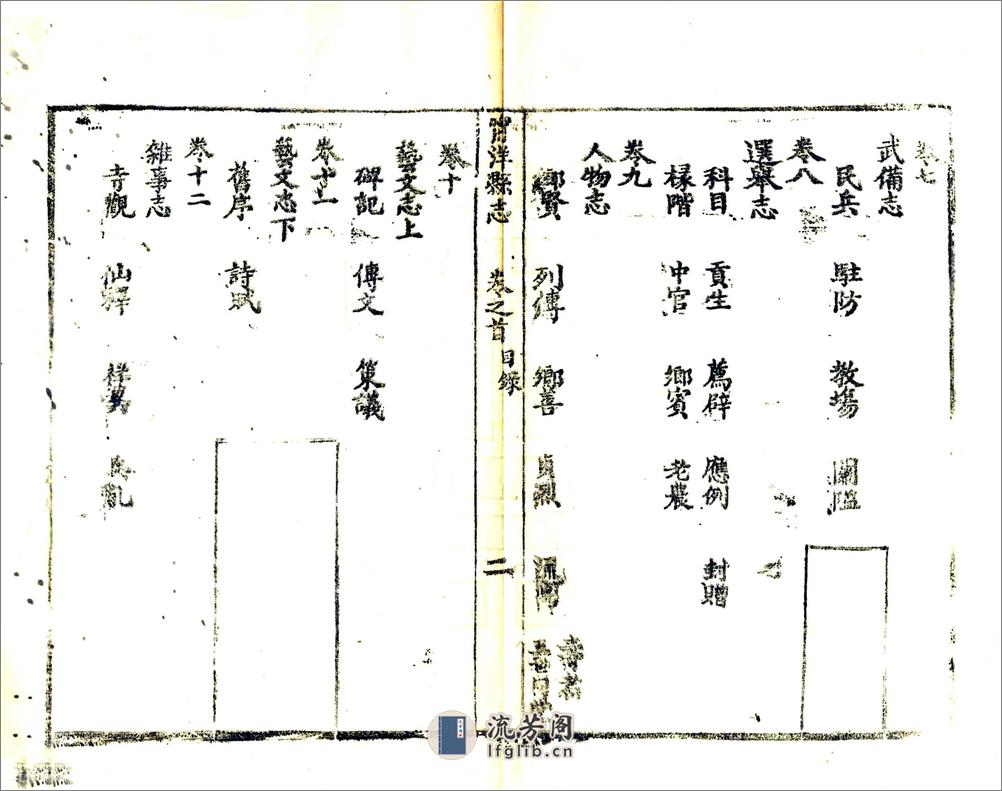 卷七
武備志
民兵 駐防 教塲 關隘
卷八
選舉志
科目 貢生 薦辟 應例 封贈
椽階 中官 鄉賓 老農
卷九
人物志
鄉賢 列傳 鄉善 貞烈 壽耆
甯洋縣志 卷之首 目錄 二
卷十
藝文志上
碑記 傳文 策議
卷十一
藝文志下
舊序 詩賦
卷十二
雜事志
寺觀 仙釋 祥異 兵亂
流芳阁
lfglib.cn